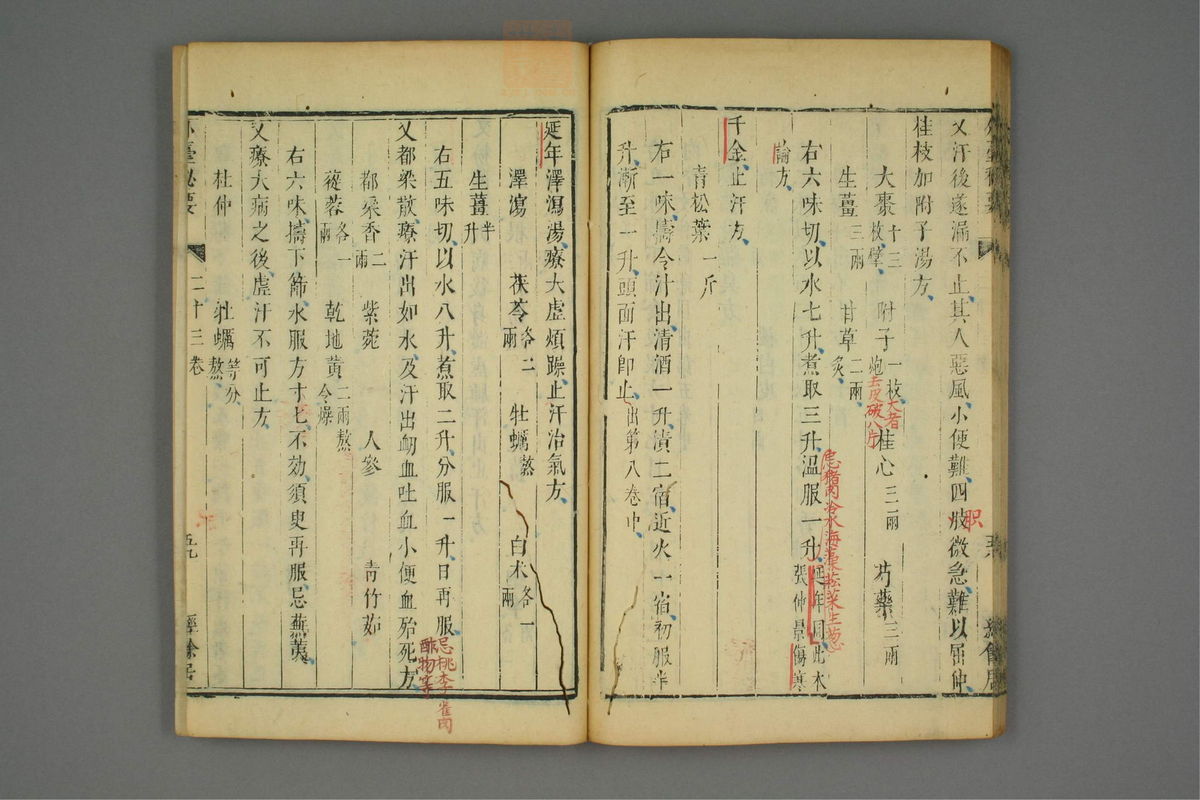 又汗後遂漏不止其人惡風小便難四肢微急難以屈伸
桂枝加附子湯方
大棗十三枚擘 附子一枚炮 桂心三兩 芍藥三兩
大者去皮破八片
生薑三兩 甘草二兩炙
忌猪肉冷水海藻菘菜生葱
右六味切以水七升煮取三升溫服一升延年同此本張仲景傷寒
論方
千金止汗方
青松葉一斤
右一味擣令汁出清酒一升漬二宿近火一宿初服半
升漸至一升頭面汗即止出第八卷中
延年澤瀉湯療大虛煩躁止汗治氣方
澤瀉 茯苓各二兩 牡蠣熬 白术各一兩
生薑半升
右五味切以水八升煮取二升分服一升日再服
忌桃李雀肉酢物等
又都梁散療汗出如水及汗出衂血吐血小便血殆死方
都梁香二兩 紫菀 人參 青竹茹
蓯蓉各一兩 乾地黃二兩熬令燥
右六味擣下篩水服方寸匕不効須臾再服忌蕪荑
又療大病之後虛汗不可止方
杜仲 牡蠣等分熬
二十三卷